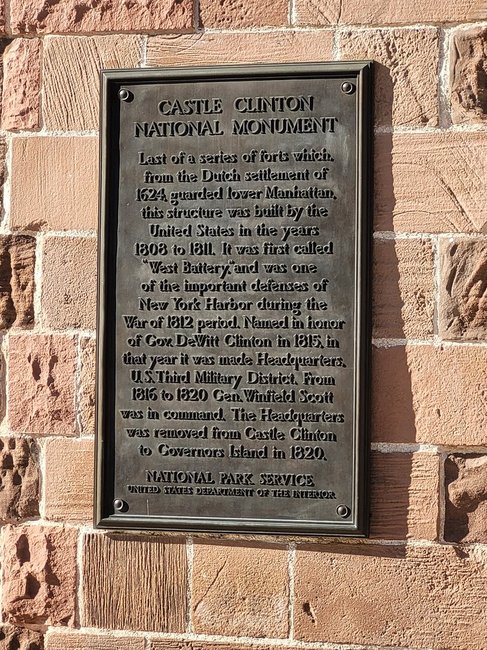 CASTLE CLINTON
NATIONAL MONUMENT
Last of a series of forts which,
from the Dutch settlement of
1624, guarded lower Manhattan,
this structure was built by the
United States in the years
1808 to 1811. It was first called
"West Battery," and was one
of the important defenses of
New York Harbor during the
War of 1812 period. Named in honor
of Gov. DeWitt Clinton in 1815, in
that year it was made Headquarters,
U.S. Third Military District. From
1816 to 1820 Gen. Winfield Scott
was in command. The Headquarters
was removed from Castle Clinton
to Governors Island in 1820.
NATIONAL PARK SERVICE
UNITED STATES DEPARTMENT OF THE INTERIOR